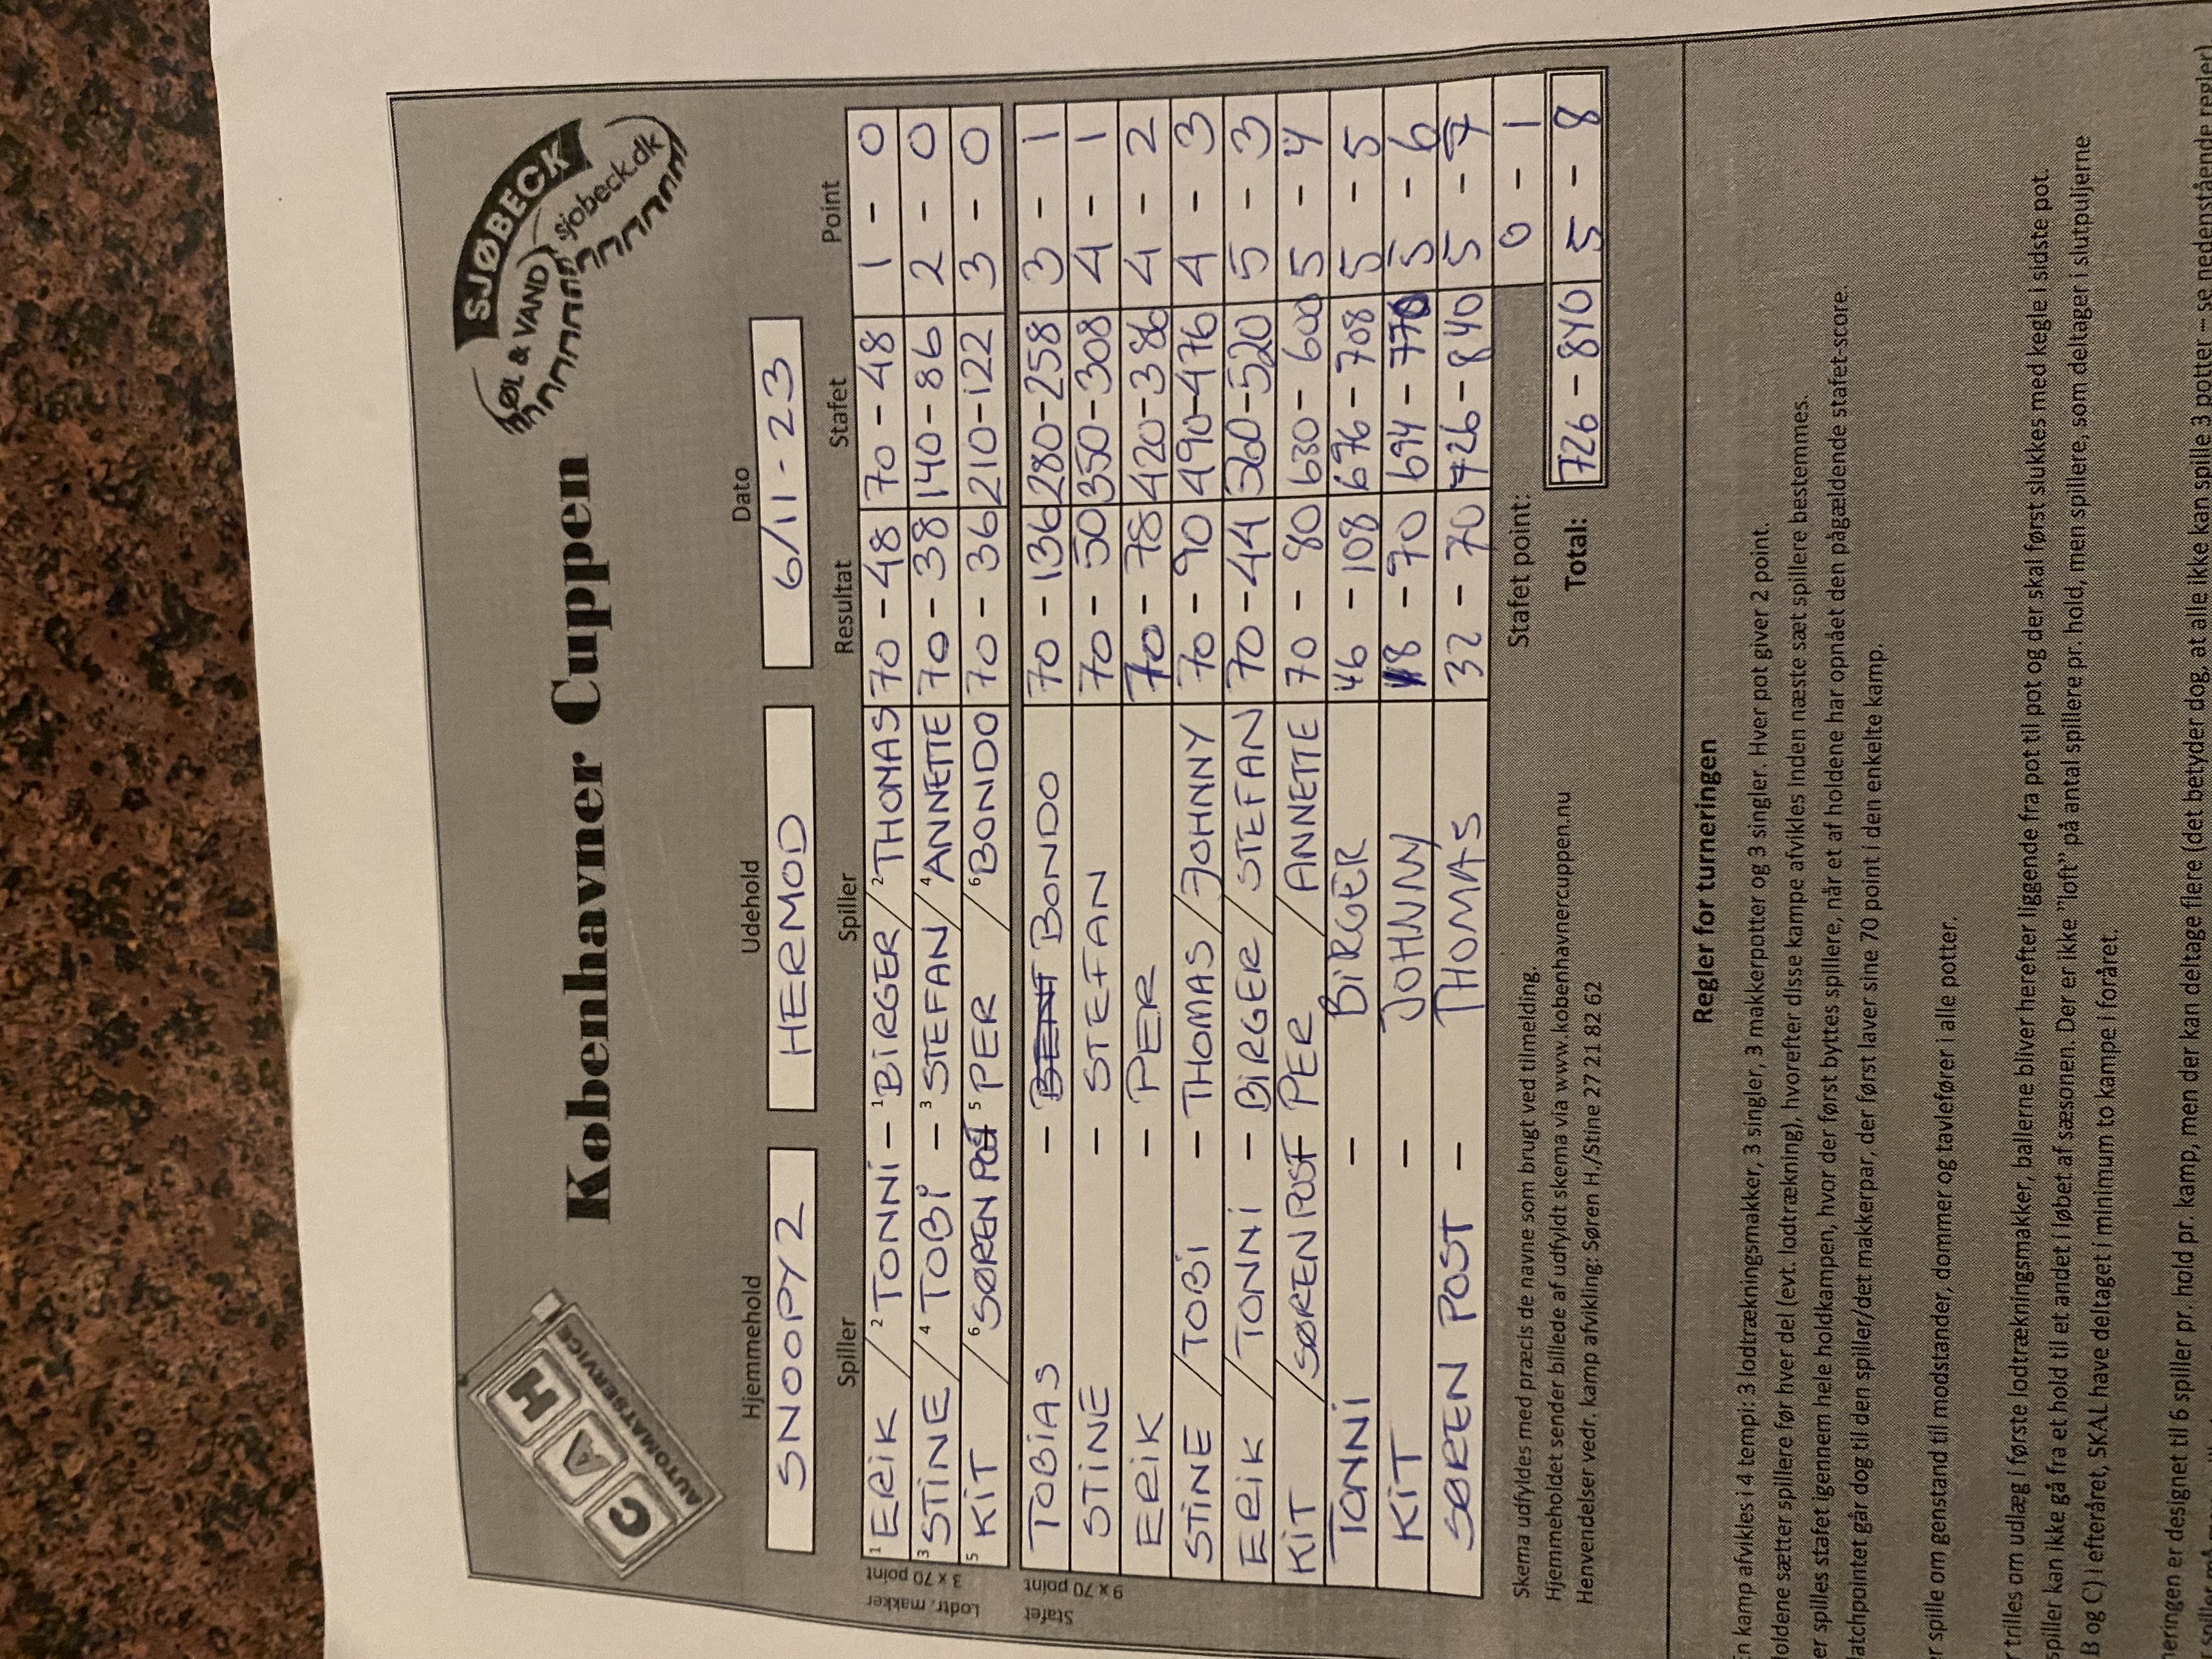 CAH
AUTOMATSERVICE
Københavner Cuppen
SJØBECK
ØL & VAND
sjobeck.dk
Hjemmehold Udehold Dato
SNOOPY 2 HERMOD 6/11-23
Spiller Spiller Resultat Stafet Point
Lodtr. makker
3 x 70 point
1 ERIK / 2 TONNI - 1 BIRGER / 2 THOMAS 70 - 48 70 - 48 1 - 0
3 STINE / 4 TOBI - 3 STEFAN / 4 ANNETTE 70 - 38 140 - 86 2 - 0
5 KIT / 6 SØREN POST 5 PER / 6 BONDO 70 - 36 210 - 122 3 - 0
Stafet
9 x 70 point
TOBIAS - BENT BONDO 70 - 136 280 - 258 3 - 1
STINE - STEFAN 70 - 50 350 - 308 4 - 1
ERIK - PER 70 - 78 420 - 386 4 - 2
STINE / TOBI - THOMAS / JOHNNY 70 - 90 490 - 476 4 - 3
ERIK / TONNI - BIRGER / STEFAN 70 - 44 560 - 520 5 - 3
KIT / SØREN POST PER / ANNETTE 70 - 80 630 - 600 5 - 4
TONNI - BIRGER 46 - 108 676 - 708 5 - 5
KIT - JOHNNY 18 - 70 694 - 770 5 - 6
SØREN POST - THOMAS 32 - 70 726 - 840 5 - 7
Stafet point: 0 - 1
Total: 726 - 840 5 - 8
Skema udfyldes med præcis de navne som brugt ved tilmelding.
Hjemmeholdet sender billede af udfyldt skema via www.kobenhavnercuppen.nu
Henvendelser vedr. kamp afvikling: Søren H./Stine 27 21 82 62
Regler for turneringen
n kamp afvikles i 4 tempi: 3 lodtrækningsmakker, 3 singler, 3 makkerpotter og 3 singler. Hver pot giver 2 point.
oldene sætter spillere før hver del (evt. lodtrækning), hvorefter disse kampe afvikles inden næste sæt spillere bestemmes.
er spilles stafet igennem hele holdkampen, hvor der først byttes spillere, når et af holdene har opnået den pågældende stafet-score.
atchpointet går dog til den spiller/det makkerpar, der først laver sine 70 point i den enkelte kamp.
r spille om genstand til modstander, dommer og tavlefører i alle potter.
r trilles om udlæg i første lodtrækningsmakker, ballerne bliver herefter liggende fra pot til pot og der skal først slukkes med kegle i sidste pot.
spiller kan ikke gå fra et hold til et andet i løbet af sæsonen. Der er ikke "loft" på antal spillere pr. hold, men spillere, som deltager i slutpuljerne
B og C) i efteråret, SKAL have deltaget i minimum to kampe i foråret.
neringen er designet til 6 spiller pr. hold pr. kamp, men der kan deltage flere (det betyder dog, at alle ikke kan spille 3 potter – se nedenstående regler)